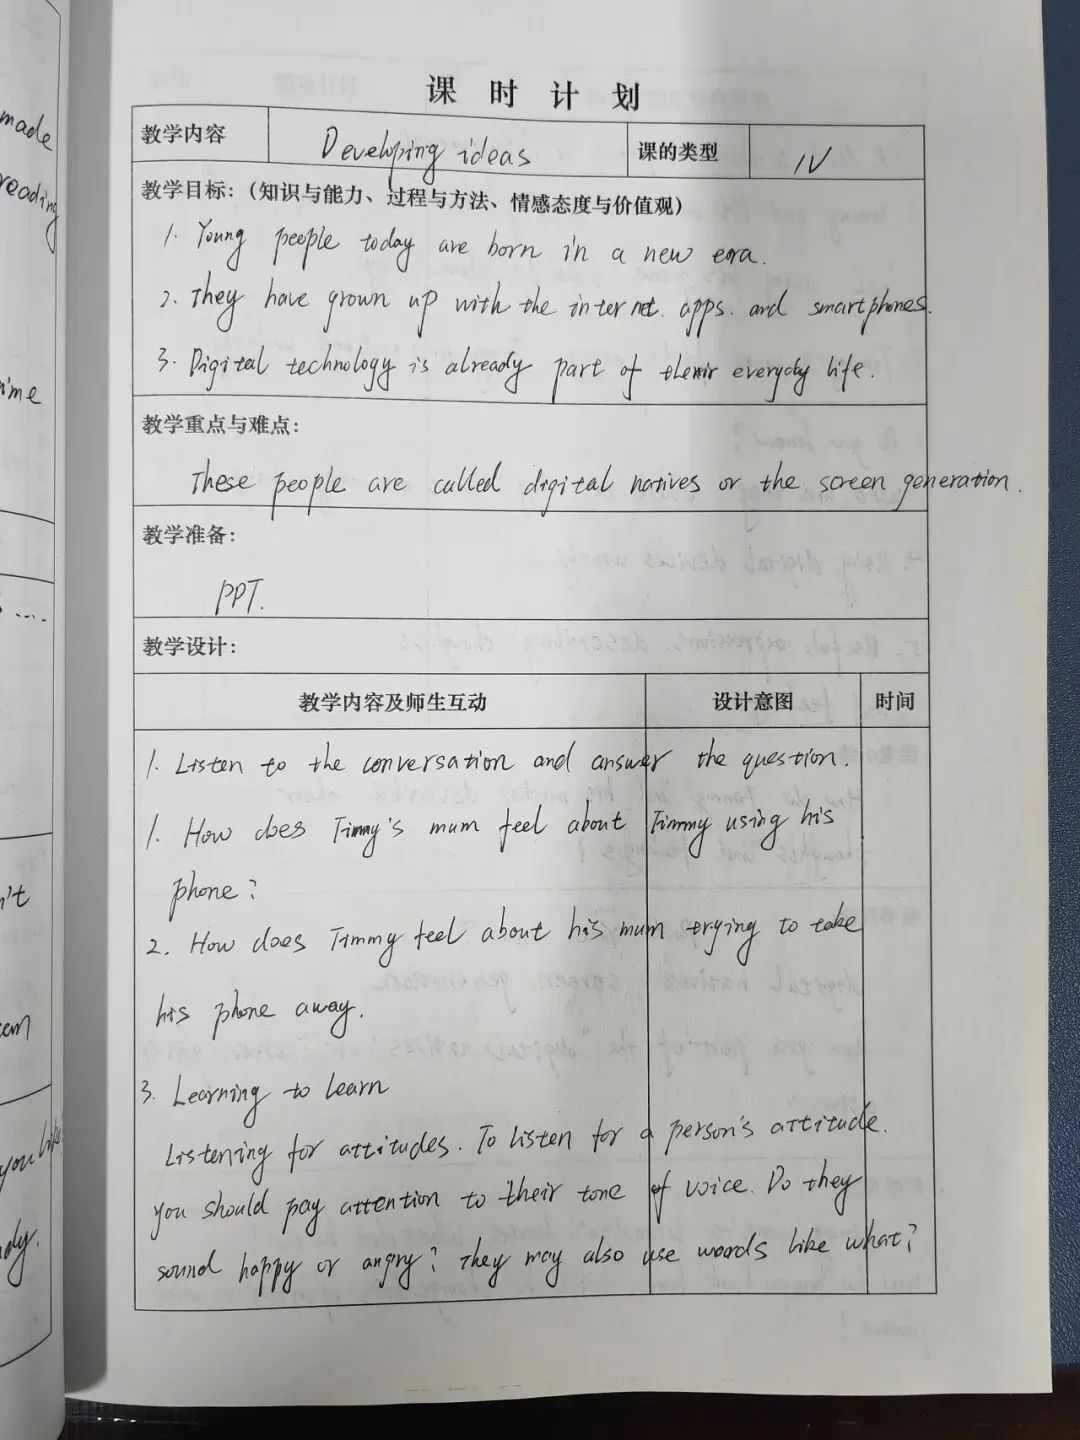 made
reading
ime
s ....
n't
em
you like
ady.
课 时 计 划
教学内容 Developing ideas 课的类型 IV
教学目标:(知识与能力、过程与方法、情感态度与价值观)
1. Young people today are born in a new era.
2. They have grown up with the internet. apps. and smartphones.
3. Digital technology is already part of their everyday life.
教学重点与难点:
These people are called digital natives or the screen generation.
教学准备:
PPT.
教学设计:
教学内容及师生互动 设计意图 时间
1. Listen to the conversation and answer the question.
1. How does Timmy's mum feel about Timmy using his
phone?
2. How does Timmy feel about his mum trying to take
his phone away.
3. Learning to learn
Listening for attitudes. To listen for a person's attitude.
you should pay attention to their tone of voice. Do they
sound happy or angry? They may also use words like what?